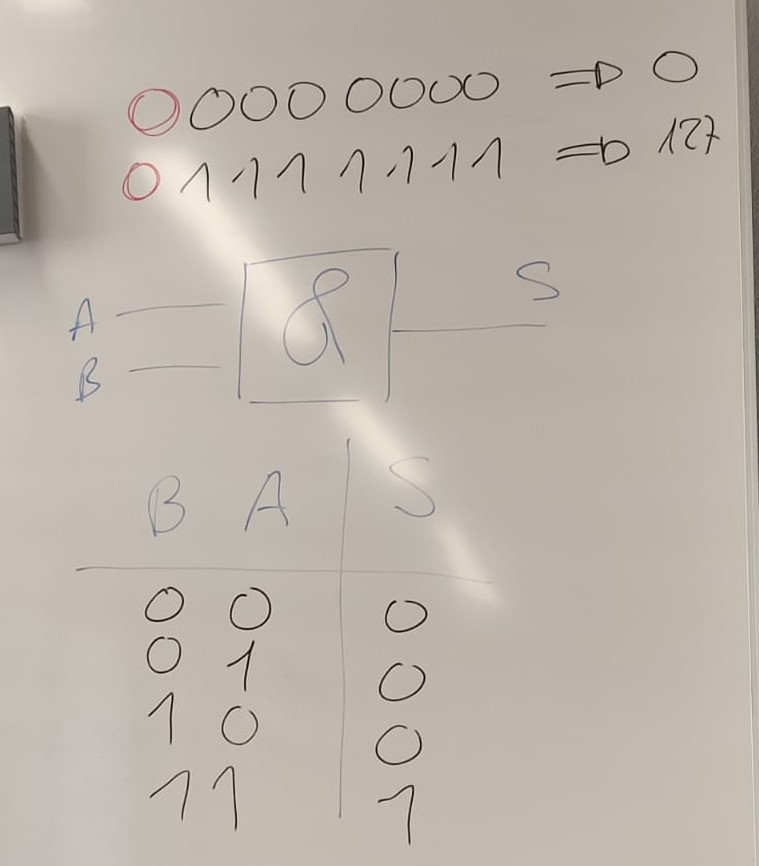 0000 0000 => 0
0111 1111 => 127
A & S
B
B A S
0 0 0
0 1 0
1 0 0
1 1 1